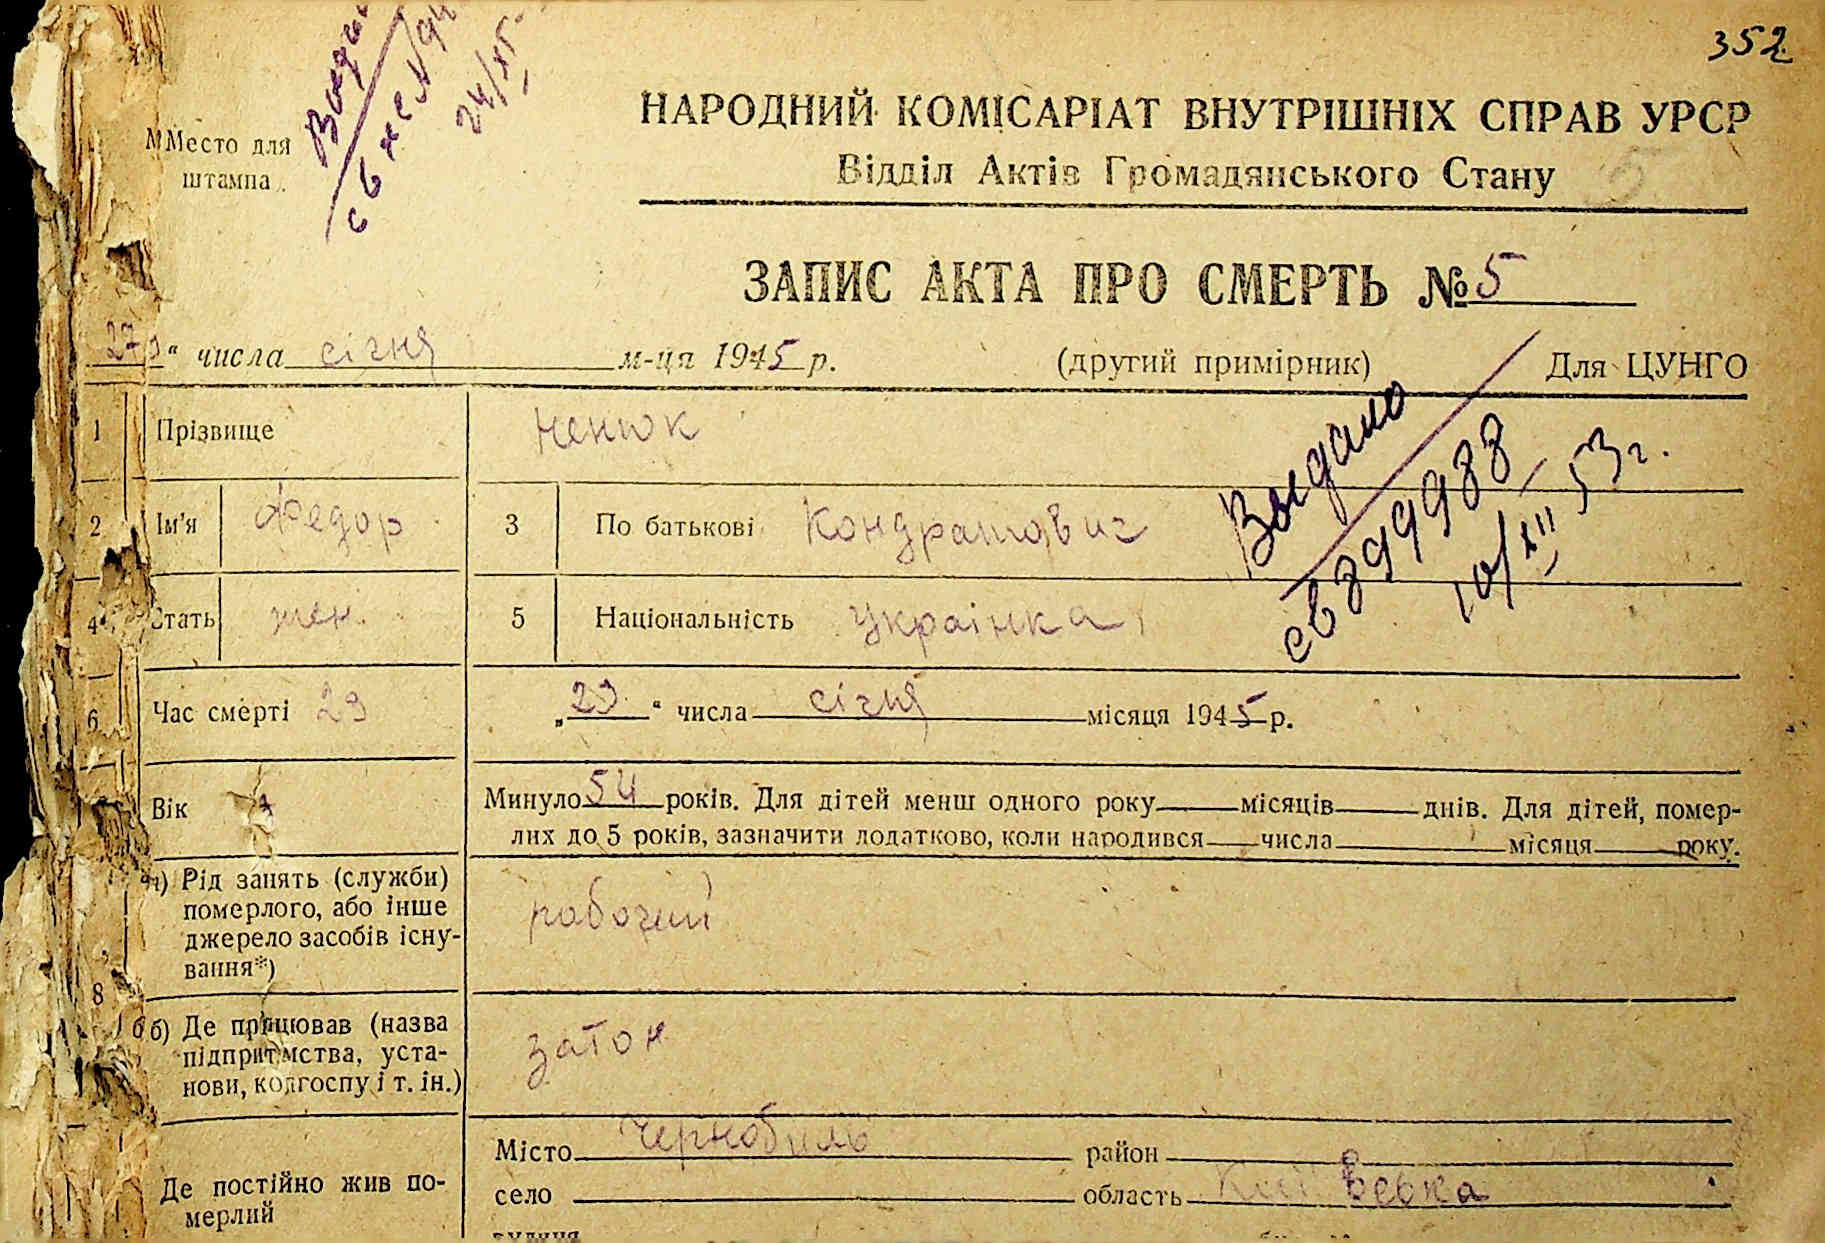 352
НАРОДНИЙ КОМІСАРІАТ ВНУТРІШНІХ СПРАВ УРСР
Место для
штампа
24/XI
Відділ Актів Громадянського Стану
5
ЗАПИС АКТА ПРО СМЕРТЬ № 5
27 " числа січня м-ця 1945 р. (другий примірник) Для ЦУНГО
1 Прізвище Ненюк
Выдано
св 399988
10/XII 53 г.
2 Ім'я Федор 3 По батькові Кондратович
4 Стать жен. 5 Національність українка
6 Час смерті 23 „ 23 " числа січня місяця 1945 р.
Вік Минуло 54 років. Для дітей менш одного року місяців днів. Для дітей, помер-
лих до 5 років, зазначити додатково, коли народився числа місяця року.
8 а) Рід занять (служби)
померлого, або інше
джерело засобів існу-
вання*)
рабочий
б) Де працював (назва
підприємства, уста-
нови, колгоспу і т. ін.)
Затон
Де постійно жив по-
мерлий
Місто Чернобиль район
село область Київська
вулиця